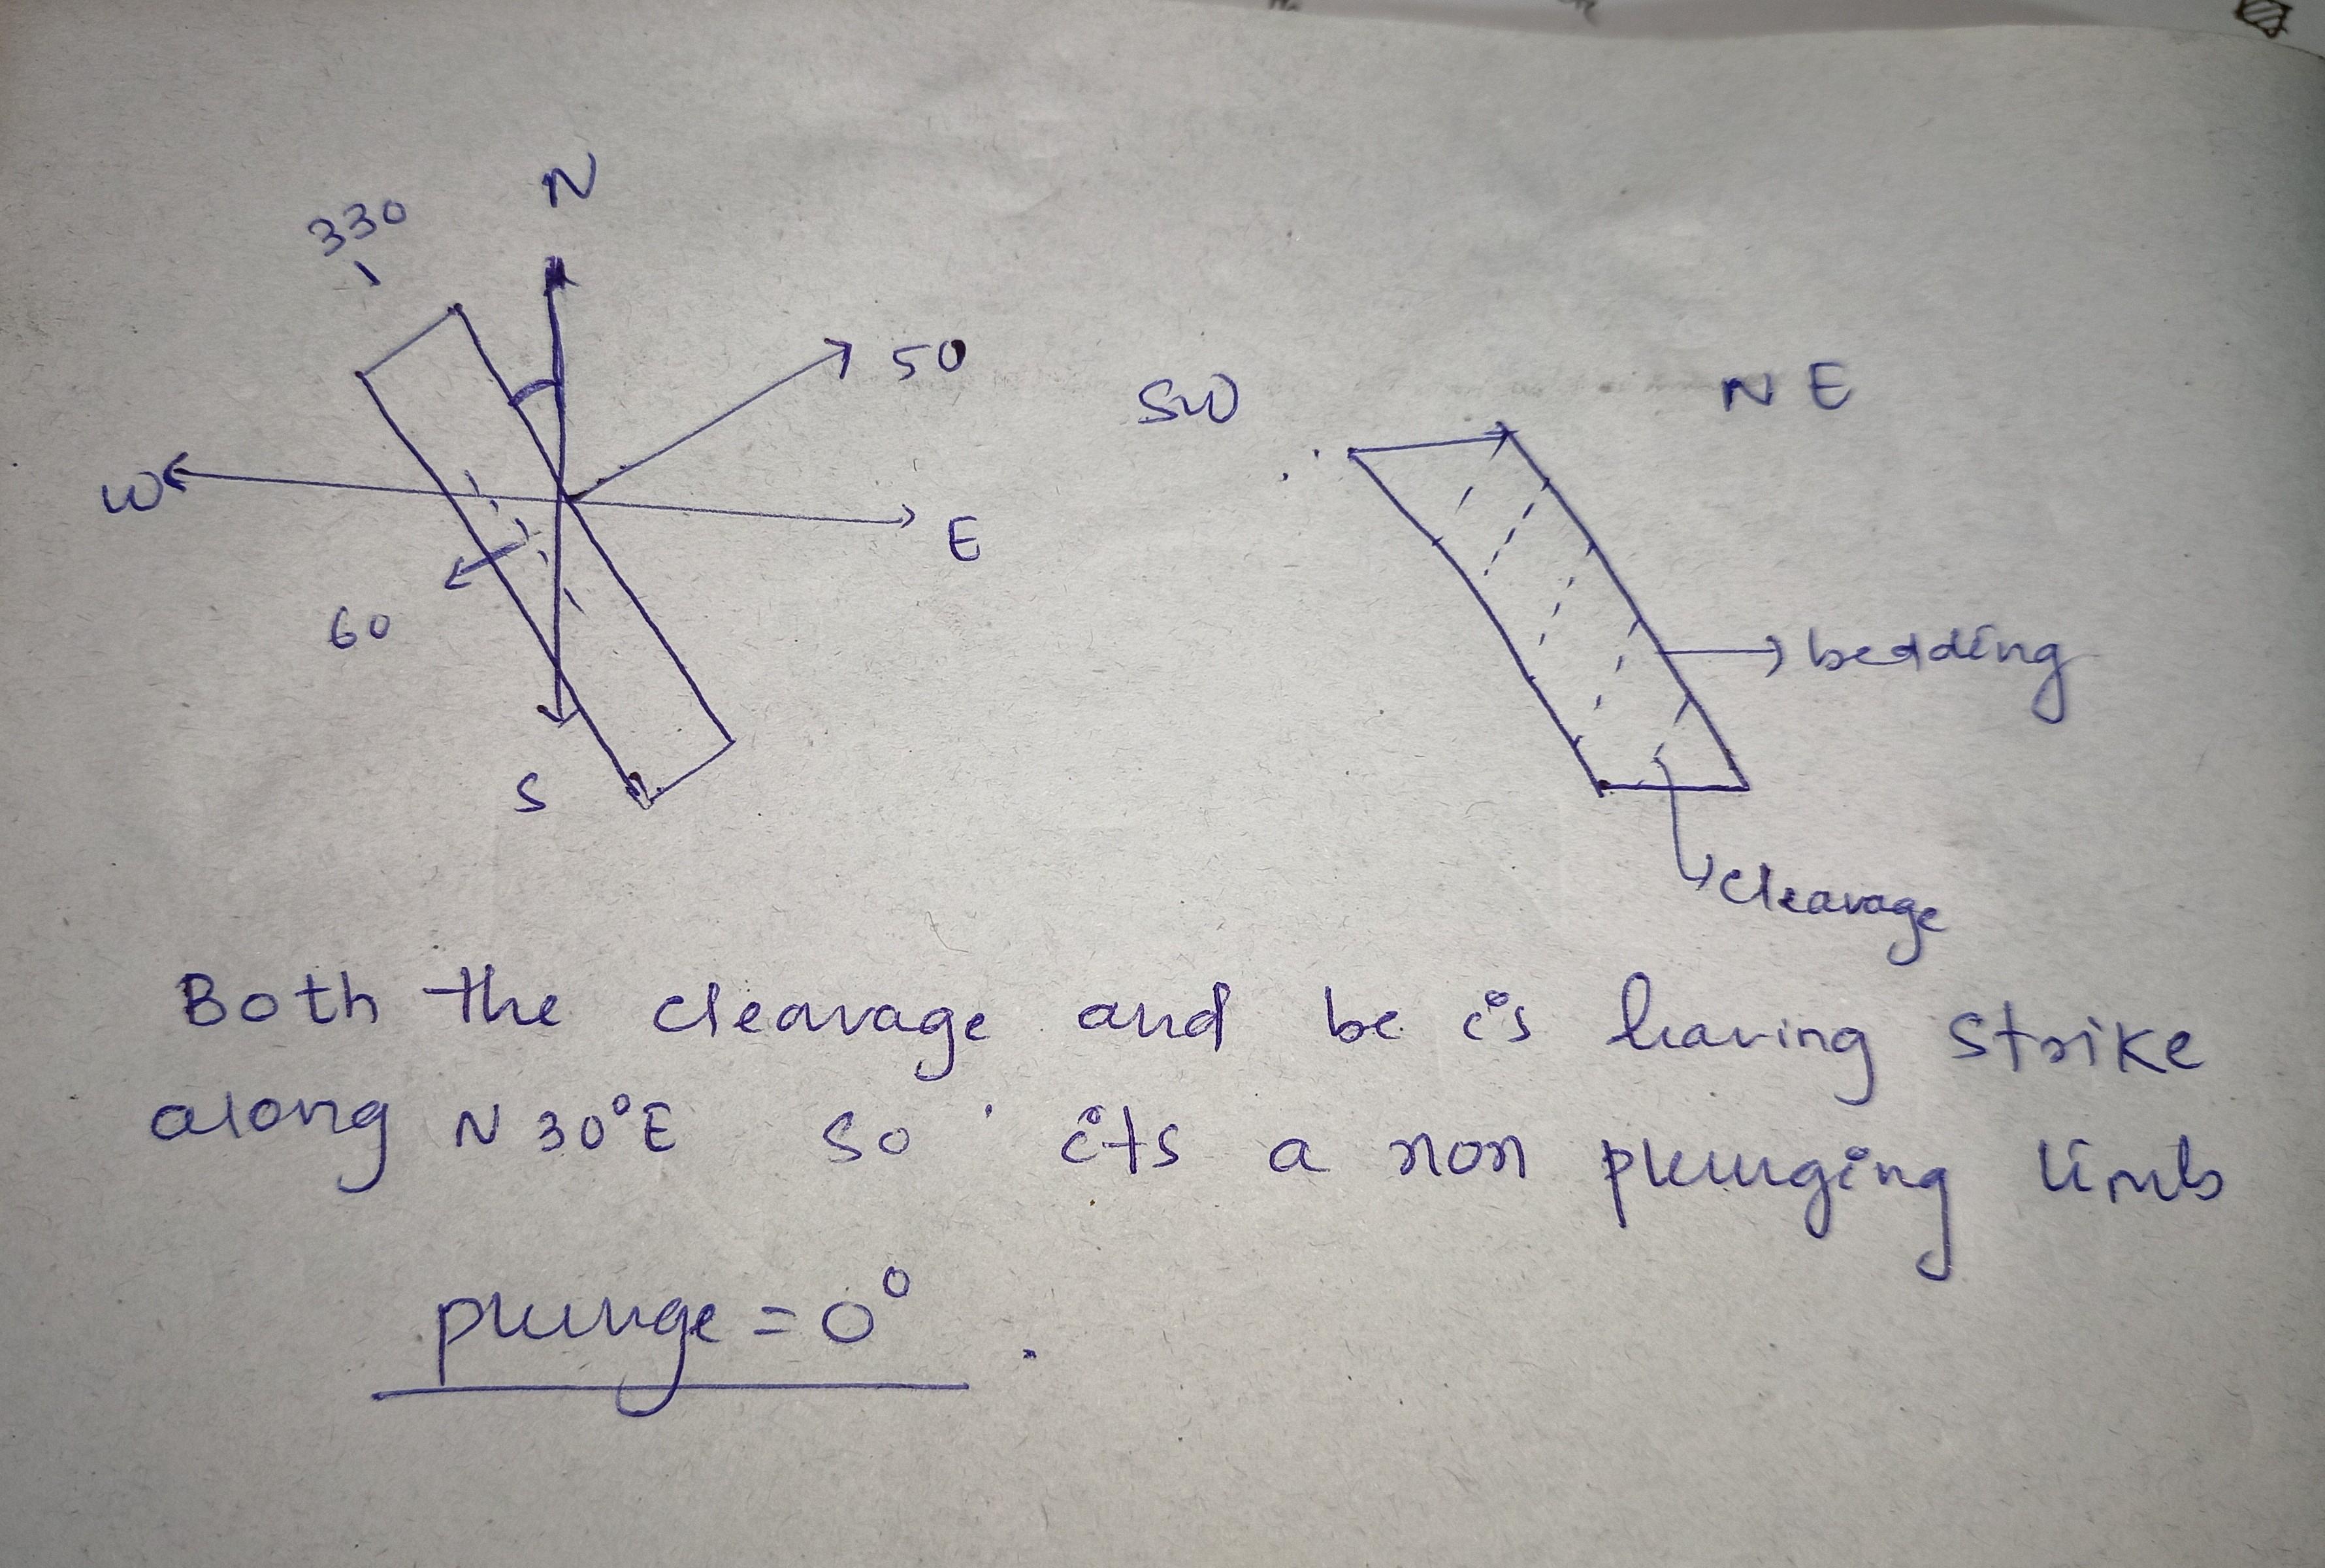 N
330
50
W
E
60
S
SW
NE
bedding
cleavage
Both the cleavage and be is having strike
along N 30°E so its a non plunging limb
plunge = 0°.